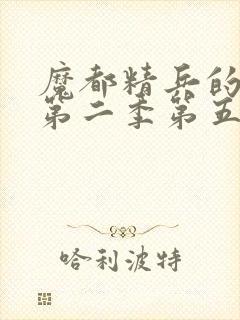 魔都精兵的
第二季第五
哈利波特